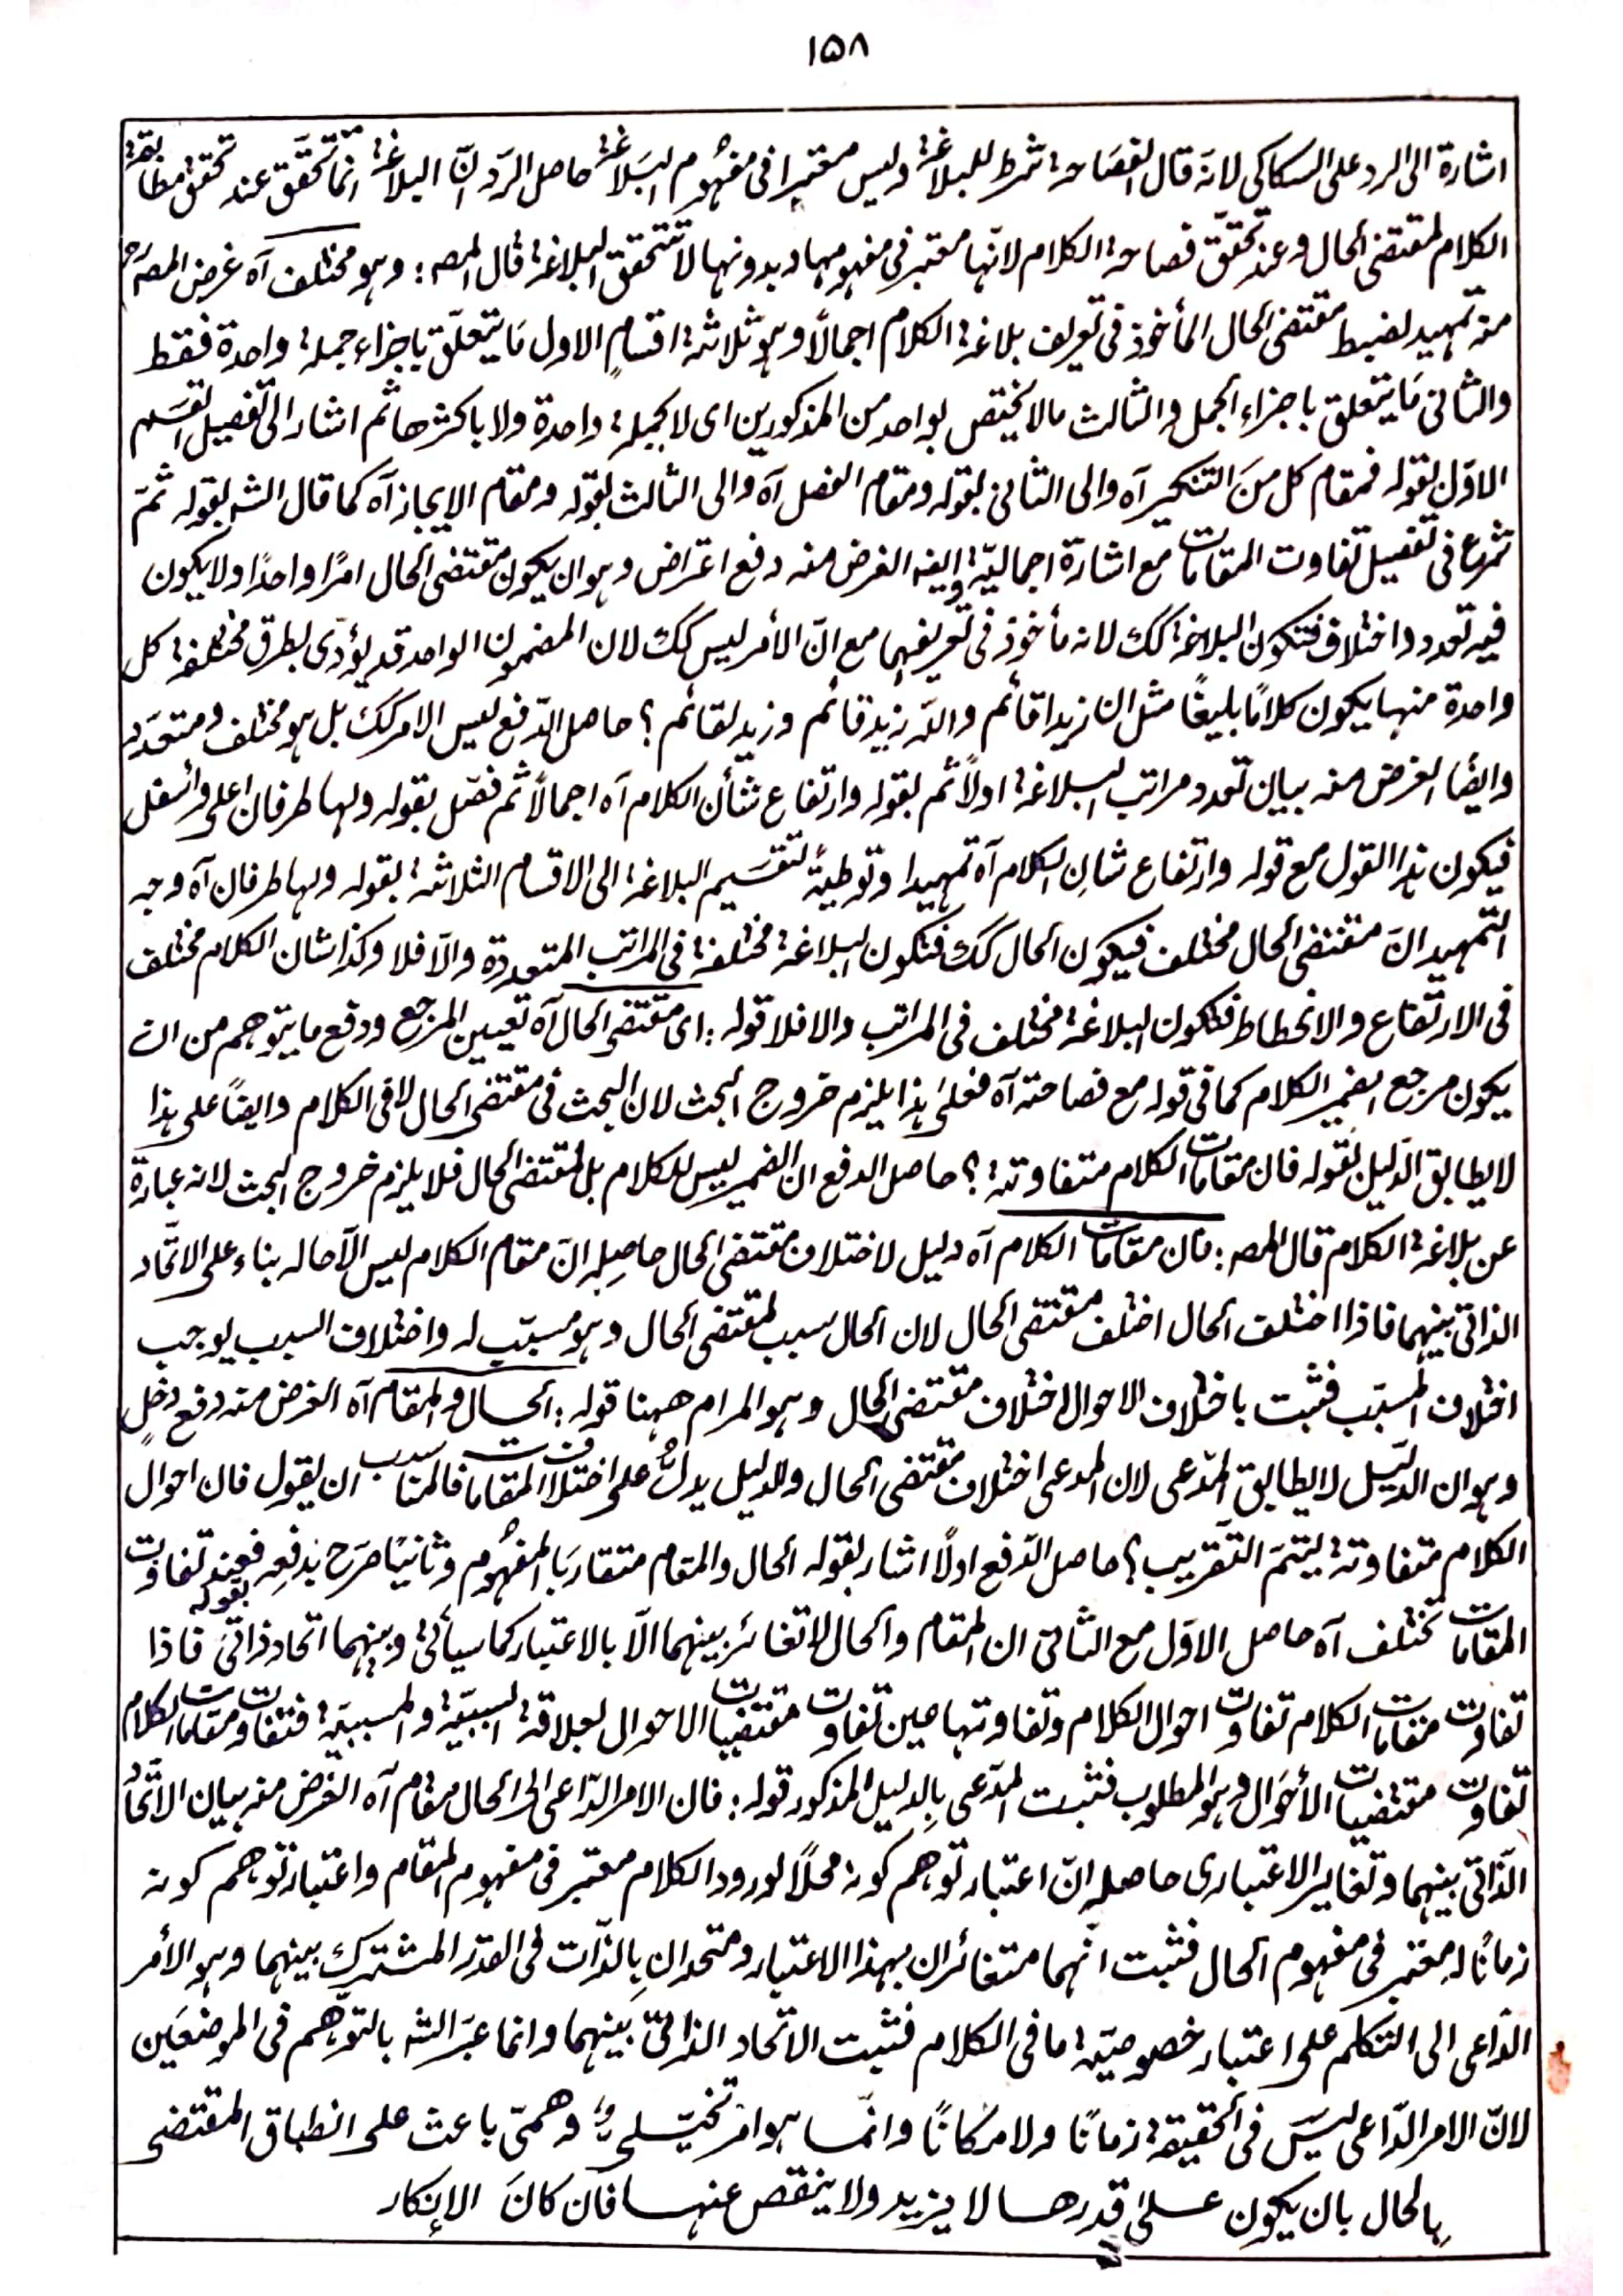 ١٥٨
اشارة الى الرد على السكاكى لانه قال الفصاحة شرط للبلاغة وليس معتبرا فى مفهوم البلاغة حاصل الردّ انّ البلاغة انّما تتحقّق عند تحقق مطابقة
الكلام لمقتضى الحال وعند تحقّق فصاحة الكلام لانّها معتبر فى مفهومها وبدونها لا تتحقق البلاغة قال المصـ: وهو مختلف آه غرض المصـ رح
منه تمهيد لضبط مقتضى الحال المأخوذ فى تعريف بلاغة الكلام اجمالًا وهو ثلاثة اقسامٍ الاول مَا يتعلّق باجزاء جملة واحدة فقط
والثانى مَا يتعلق باجزاء الجمل والثالث مالا يختص بواحد من المذكورين اى لا بجملة واحدة ولا باكثرها ثم اشار الى تفصيل القسم
الاوّل بقوله فمقام كل منَ التنكير آه والى الثانى بقوله ومقام الفصل آه والى الثالث بقوله ومقام الايجاز آه كما قال الشـ بقوله ثمّ
شرع فى تفصيل تفاوت المقامات مع اشارة اجماليّة وايضه الغرض منه دفع اعتراض وهو ان يكون مقتضى الحال امرًا واحدًا ولا يكون
فيه تعدد واختلاف فتكون البلاغة كك لانه مأخوذ فى تعريفهما مع انّ الأمر ليس كك لان المضمون الواحد قد يؤدّى بطرق مختلفة كل
واحدة منها يكون كلامًا بليغًا مثل ان زيدا قائم واللّه زيد قائم وزيد لقائم؟ حاصل الدّفع ليس الامر كك بل هو مختلف ومتعدّد
وايضًا الغرض منه بيان تعدد مراتب البلاغة اولًا ثم بقوله وارتفاع شأن الكلام آه اجمالًا ثم فصّل بقوله ولها طرفان اعلى واسفل
فيكون هذا القول مع قوله وارتفاع شان الكلام آه تمهيدا وتوطيةً لتقسَيم البلاغة الى الاقسام الثلاثة بقوله ولها طرفان آه وجه
التّمهيد انّ مقتضى الحال مختلف فيكون الحال كك فتكون البلاغة مختلفة فى المراتب المتعددة والّا فلا وكذا شان الكلام مختلف
فى الارتفاع والانحطاط فتكون البلاغة مختلف فى المراتب والا فلا قوله: اى مقتضى الحال آه تعيين المرجع ودفع ما يتوهم من ان
يكون مرجع الضمير الكلام كما فى قوله مع فصاحته آه فعلىٰ هذا يلزم خروج البحث لان البحث فى مقتضى الحال لا فى الكلام وايضًا على هذا
لا يطابق الدّليل بقوله فان مقامات الكلام متفاوتة؟ حاصل الدفع ان الضمير ليس للكلام بل لمقتضى الحال فلا يلزم خروج البحث لانه عبارة
عن بلاغة الكلام قال المصـ: فان مقامات الكلام آه دليل لاختلاف مقتضى الحال حاصِلهِ انّ مقام الكلام ليس الّا حاله بناء على الاتّحاد
الذاتى بينهما فاذا اختلف الحال اختلف مقتضى الحال لان الحال سبب لمقتضى الحال وهو مسبّب له واختلاف السبب يوجب
اختلاف المسبّب فثبت باختلاف الاحوال اختلاف مقتضى الحال وهو المرام ههنا قوله: الحال والمقام آه الغرض منه دفع دخلٍ
وهو ان الدليل لا يطابق المدّعى لان المدعى اختلاف مقتضى الحال والدليل يدلُّ على اختلاف المقامات فالمناسب ان يقول فان احوال
الكلام متفاوتة ليتمّ التّقريب؟ حاصل الدّفع اولًا اشار بقوله الحال والمقام متقاربَا المفهُوم وثانيًا صرّح بدفعِه بقوله فعند تفاوت
المقامات تختلف آه حاصل الاوّل مع الثانى ان المقام والحال لا تغائر بينهما الّا بالاعتبار كما سيأتى وبينهما اتحاد ذاتىّ فاذا
تفاوت مقامات الكلام تفاوت احوال الكلام وتفاوتها عين تفاوت مقتضيات الاحوال لعلاقة السببيّة والمسببيّة فتفاوت مقامات الكلام
تفاوت مقتضيات الأحوال وهو المطلوب فثبت المدّعى بالدليل المذكور قوله: فان الامر الدّاعى الى الحال مقام آه الغرض منه بيان الاتّحادُ
الذّاتى بينهما وتغاير الاعتبارى حاصله انّ اعتبار توهم كونه محلًا لورود الكلام معتبر فى مفهوم المقام واعتبار توهم كونه
زمانًا له معتبر فى مفهوم الحال فثبت انّهما متغائران بهذا الاعتبار ومتحدانِ بالذّات فى القدر المشترك بينهما وهو الأمر
الدّاعى الى التكلم على اعتبار خصوصيّة ما فى الكلام فثبت الاتحاد الذاتىّ بينهما وانما عبّر الشـ بالتوهّم فى الموضعَين
لانّ الامر الدّاعى ليسَ فى الحقيقة زمانًا ولا مكانًا وانّما هو امر تخيّلىٌ وهمىّ باعث على انطباق المقتضى
بالحال بان يكون علىٰ قدرها لا يزيد ولا ينقص عنها فان كانَ الإنكار